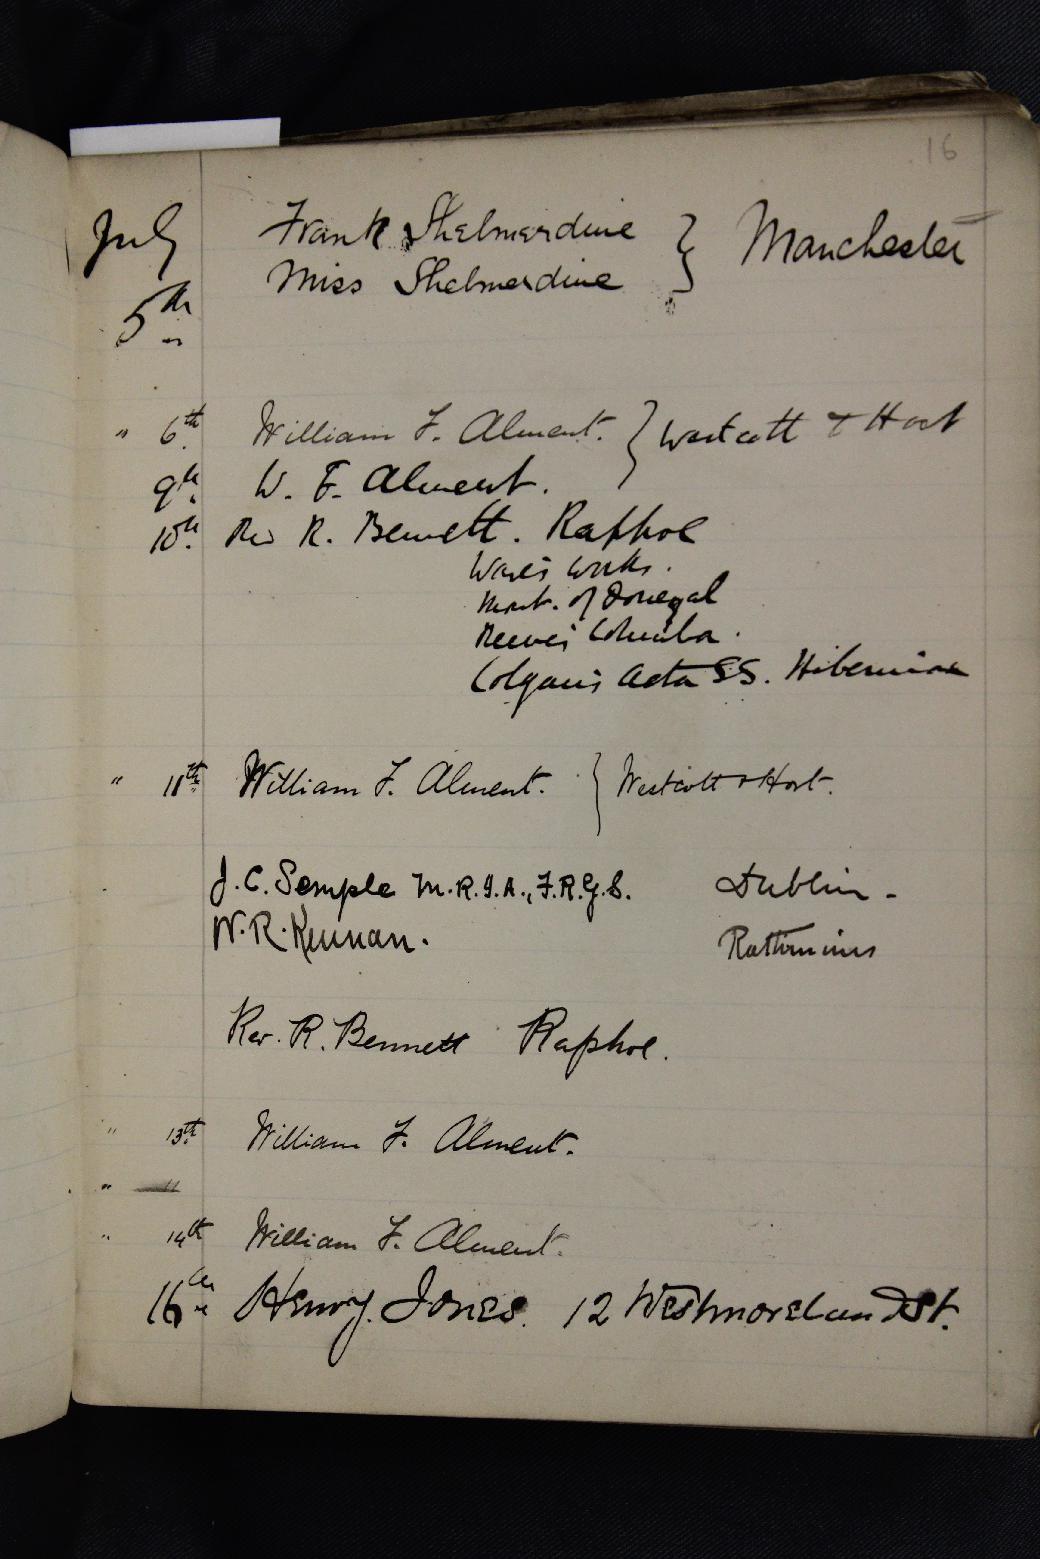 16
July 5th Frank Shelmerdine } Manchester
Miss Shelmerdine
" 6th. William F. Alment. } Westcott & Hort
9th. W. F. Alment.
10th. Rev R. Bennett. Raphoe
Ware's Works.
Mont. of Donegal
Reeves' Columba.
Colgan's Acta SS. Hiberniae
" 11th. William F. Alment. } Westcott & Hort.
J. C. Semple M.R.I.A., F.R.G.S. Dublin -
W. R. Kennan. Rathmines
Rev. R. Bennett Raphoe.
" 13th. William F. Alment.
"
" 14th William F. Alment.
16th Henry J. Jones. 12 Westmoreland St.